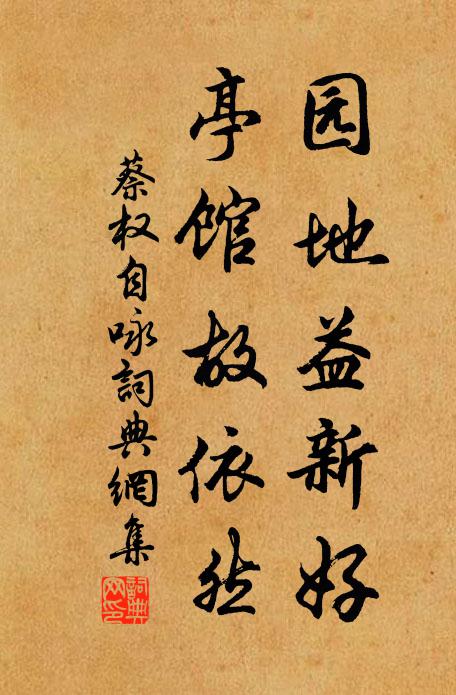 园地益新好
亭馆故依然
蔡权自咏詞典網集
詞典網印